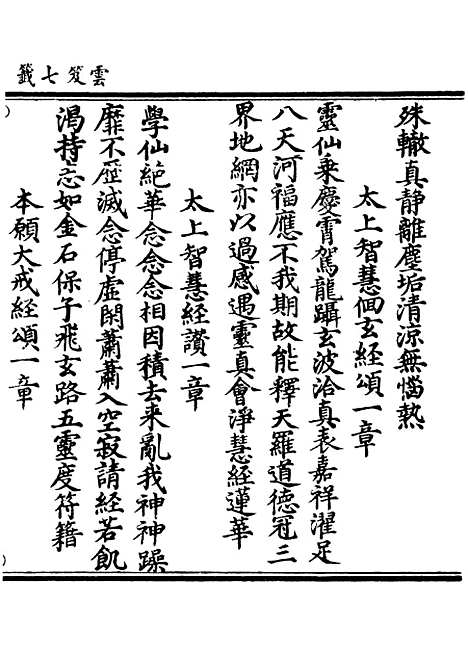 雲笈七籤
殊轍真静離塵垢清涼無惱熱
太上智慧回玄經頌一章
靈仙乗慶霄駕龍躡玄波洽真表嘉祥濯足
八天河福應不我期故能釋天羅道德冠三
界地網亦以過感遇靈真會淨慧經蓮華
太上智慧經讚一章
學仙絶華念念念相因積去来亂我神神躁
靡不歷滅念停虚閑蕭蕭入空寂請經若飢
渴持忘如金石保子飛玄路五靈度符籍
本願大戒經頌一章